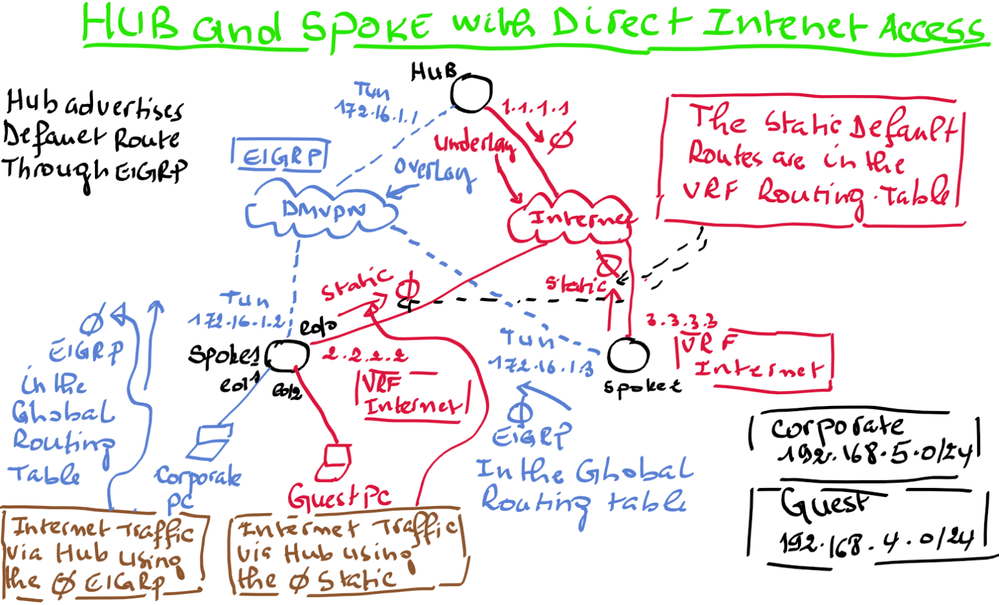 HUB and SPOKE with Direct Intenet Access
HUB
Tun
172.16.1.1
1.1.1.1
Ø
Hub advertises
Defauet Route
Through EIGRP
EIGRP
Overlay
Underlay
DMVPN
Internet
The Static Default
Routes are in the
VRF Routing Table
Static Ø
Ø
Static
Tun
172.16.1.2
e0/0
Spoke1
e0/1
e0/2
2.2.2.2
VRF
Internet
3.3.3.3
VRF
Internet
Tun
172.16.1.3
Spoke2
Ø
EIGRP
in the
Ghobal
Routing
Table
Corporate
PC
Guest PC
Ø
EIGRP
In the Ghobal
Routing table
Corporate
192.168.5.0/24
Guest
192.168.4.0/24
Internet Traffic
via Hub using
the Ø EIGRP
Internet Traffic
via Hub using
the Ø Static